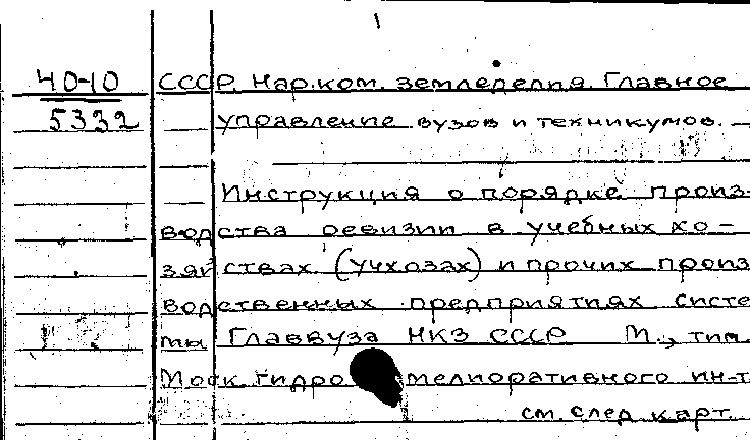 40-10 СССР. Нар.ком. земледелия. Главное
5332 управление вузов и техникумов. —
Инструкция о порядке произ-
водства ревизии в учебных хо-
зяйствах (учхозах) и прочих произ
водственных предприятиях систе
мы Главвуза НКЗ СССР М., тип.
Моск гидро мелиоративного ин-т
см. след карт.